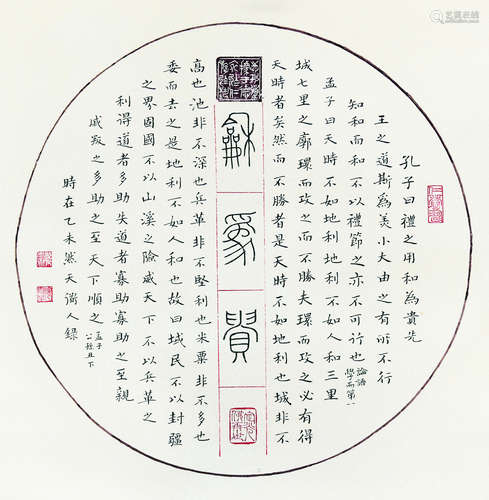 孔子曰禮之用和為貴先
王之道斯為美小大由之有所不行
知和而和不以禮節之亦不可行也
論語
學而第一
孟子曰天時不如地利地利不如人和三里
城七里之郭環而攻之而不勝夫環而攻之必有得
天時者矣然而不勝者是天時不如地利也城非不
龢為貴
高也池非不深也兵革非不堅利也米粟非不多也
委而去之是地利不如人和也故曰域民不以封疆
之界固國不以山溪之險威天下不以兵革之
利得道者多助失道者寡助寡助之至親
戚叛之多助之至天下順之
孟子
公孫丑下
時在乙未天人錄